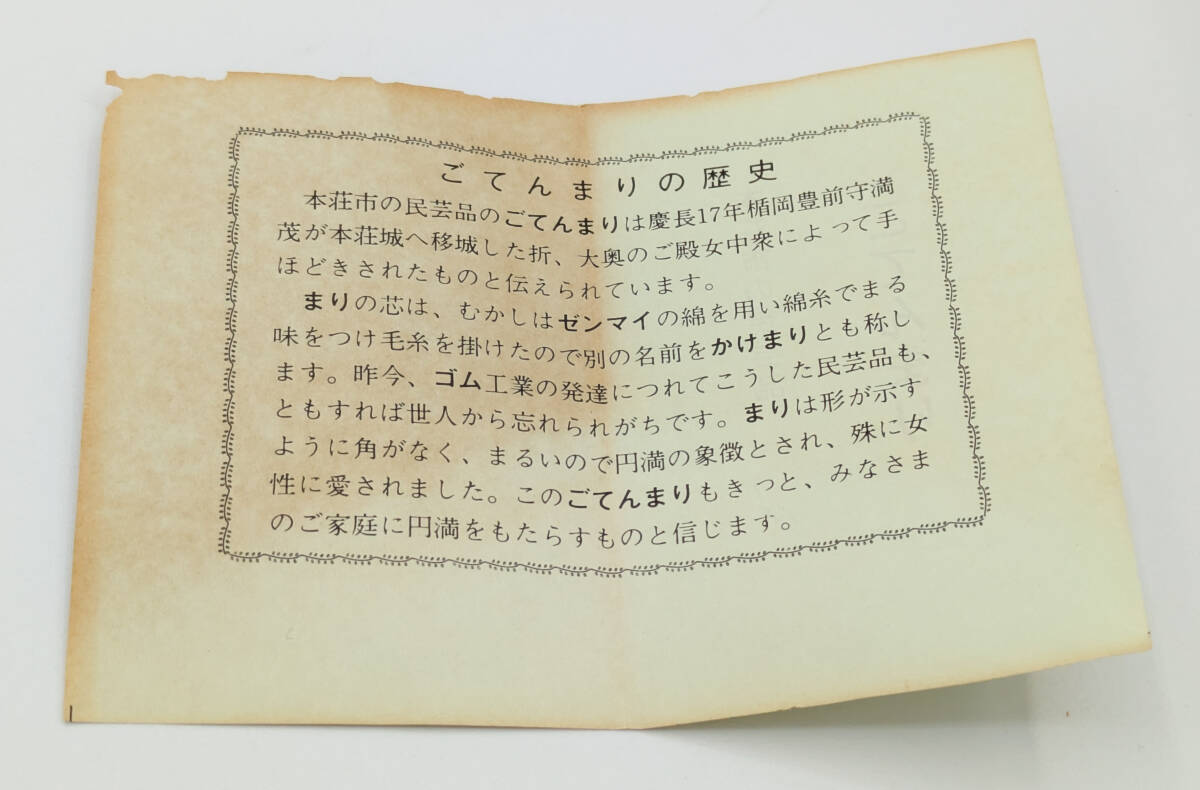 ごてんまりの歴史
本荘市の民芸品のごてんまりは慶長17年楯岡豊前守満
茂が本荘城へ移城した折、大奥のご殿女中衆によって手
ほどきされたものと伝えられています。
まりの芯は、むかしはゼンマイの綿を用い綿糸でまる
味をつけ毛糸を掛けたので別の名前をかけまりとも称し
ます。昨今、ゴム工業の発達につれてこうした民芸品も、
ともすれば世人から忘れられがちです。まりは形が示す
ように角がなく、まるいので円満の象徴とされ、殊に女
性に愛されました。このごてんまりもきっと、みなさま
のご家庭に円満をもたらすものと信じます。